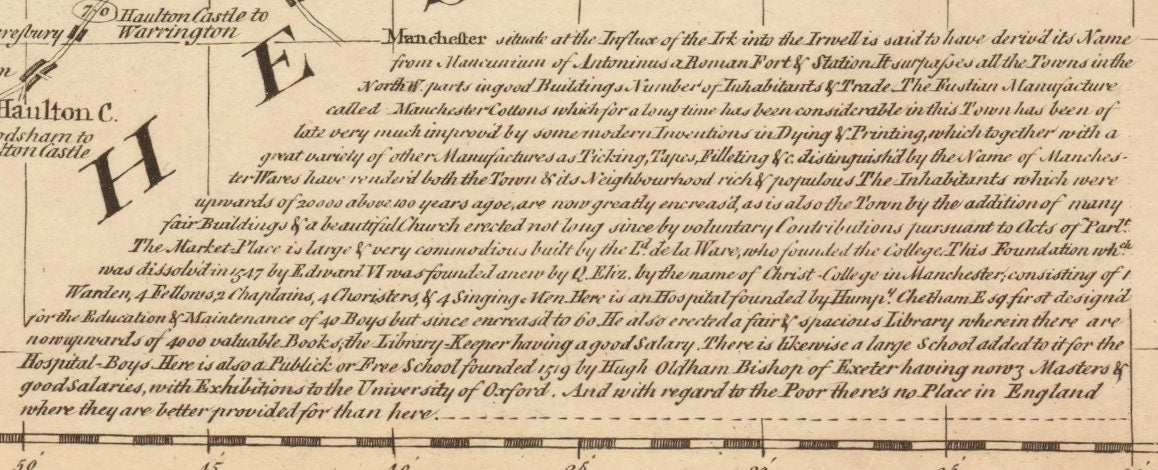 7/0 Haulton Castle to
Warrington
resbury
Haulton C.
odsham to
lton Castle
H
E
Manchester situate at the Influx of the Irk into the Irwell is said to have deriv'd its Name
from Mancunium of Antoninus a Roman Fort & Station. It surpasses all the Towns in the
North W. parts in good Buildings Number of Inhabitants & Trade. The Fustian Manufacture
called Manchester Cottons which for a long time has been considerable in this Town has been of
late very much improv'd by some modern Inventions in Dying & Printing, which together with a
great variety of other Manufactures as Ticking, Tapes, Filleting &c. distinguish'd by the Name of Manches-
ter Wares have render'd both the Town & its Neighbourhood rich & populous The Inhabitants which were
upwards of 20000 above 100 years agoe, are now greatly encreas'd, as is also the Town by the addition of many
fair Buildings & a beautiful Church erected not long since by voluntary Contributions pursuant to Acts of Parlt.
The Market-Place is large & very commodious built by the Ld. de la Ware, who founded the College. This Foundation wh.ch
was dissolv'd in 1547 by Edward VI was founded anew by Q. Eliz. by the name of Christ-College in Manchester; consisting of 1
Warden, 4 Fellows, 2 Chaplains, 4 Choristers, & 4 Singing Men. Here is an Hospital founded by Hump.y Chetham Esq. first design'd
for the Education & Maintenance of 40 Boys but since encreas'd to 60 He also erected a fair & spacious Library wherein there are
now upwards of 4000 valuable Books, the Library-Keeper having a good Salary. There is likewise a large School added to it for the
Hospital-Boys. Here is also a Publick or Free School founded 1519 by Hugh Oldham Bishop of Exeter having now 3 Masters &
good Salaries, with Exhibitions to the University of Oxford. And with regard to the Poor there's no Place in England
where they are better provided for than here.
50' 45 40 35' 30' 25'